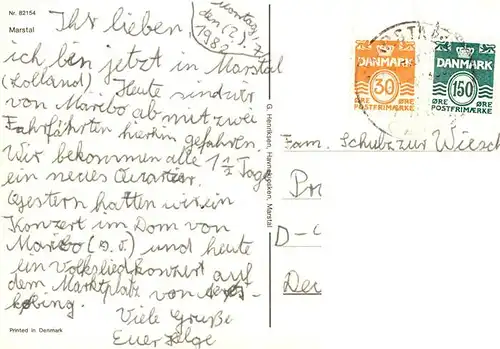 Nr. 82154
Marstal
Montag,
den 12.7.
1982
Ihr lieben,
ich bin jetzt in Marstal
(Lolland) Heute sind wir
von Maribo ab mit zwei
Fahrfährten hierhin gefahren.
Wir bekommen alle 1 1/2 Tage
ein neues Quartier.
Gestern hatten wir ein
Konzert im Dom von
Maribo (s. o.) und heute
ein Volksliedkonzert auf
dem Marktplatz von
købing.
Viele Grüße
Euer Helge
Printed in Denmark
G. Henriksen, Marstal
DANMARK
30
ØRE ØRE
POSTFRIMÆRKE
DANMARK
150
ØRE ØRE
POSTFRIMÆRKE
Fam. Schulz zur Wiesch
Pr
D-
De